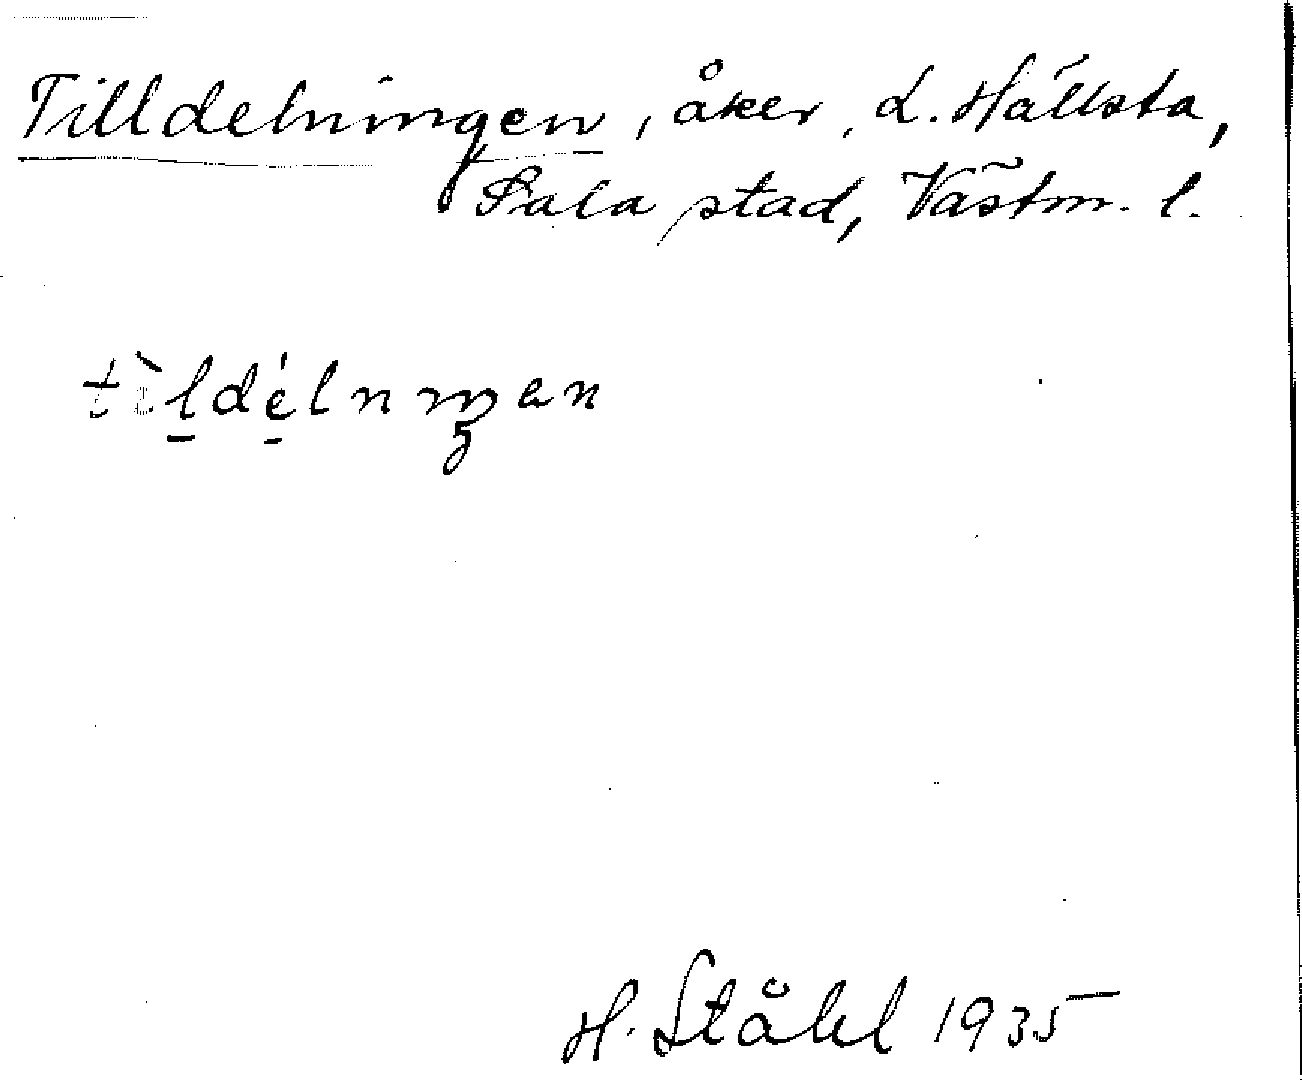 Tilldelningen, åker, L. Hällsta,
Sala stad, Västm. l.
tìldélnıŋən
H. Ståhl 1935